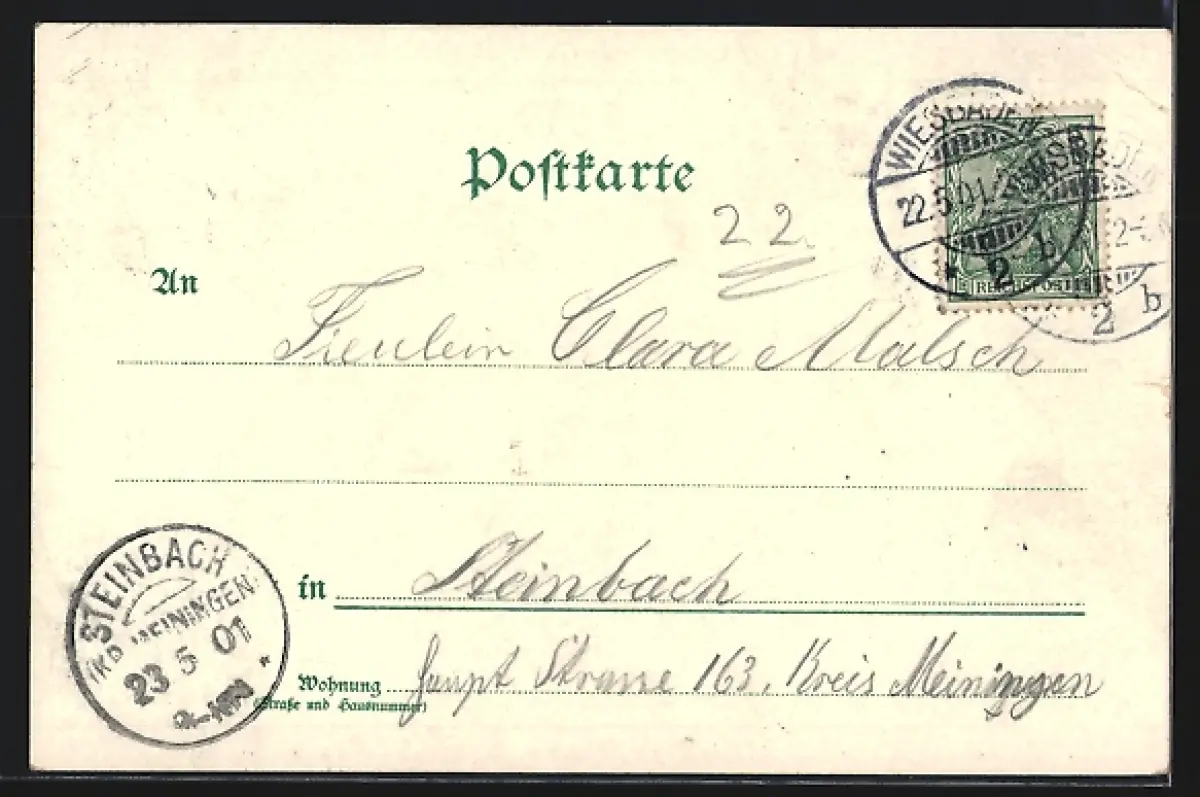 Postkarte
WIESBADEN
22.5.01
* 2 b
WIESBADEN
2 b
REICHSPOST
22.
An
Freulein Clara Malsch
in Steinbach
Wohnung Haupt Strasse 163, Kreis Meiningen
(Straße und Hausnummer)
STEINBACH
(KR. MEININGEN)
23 5 01